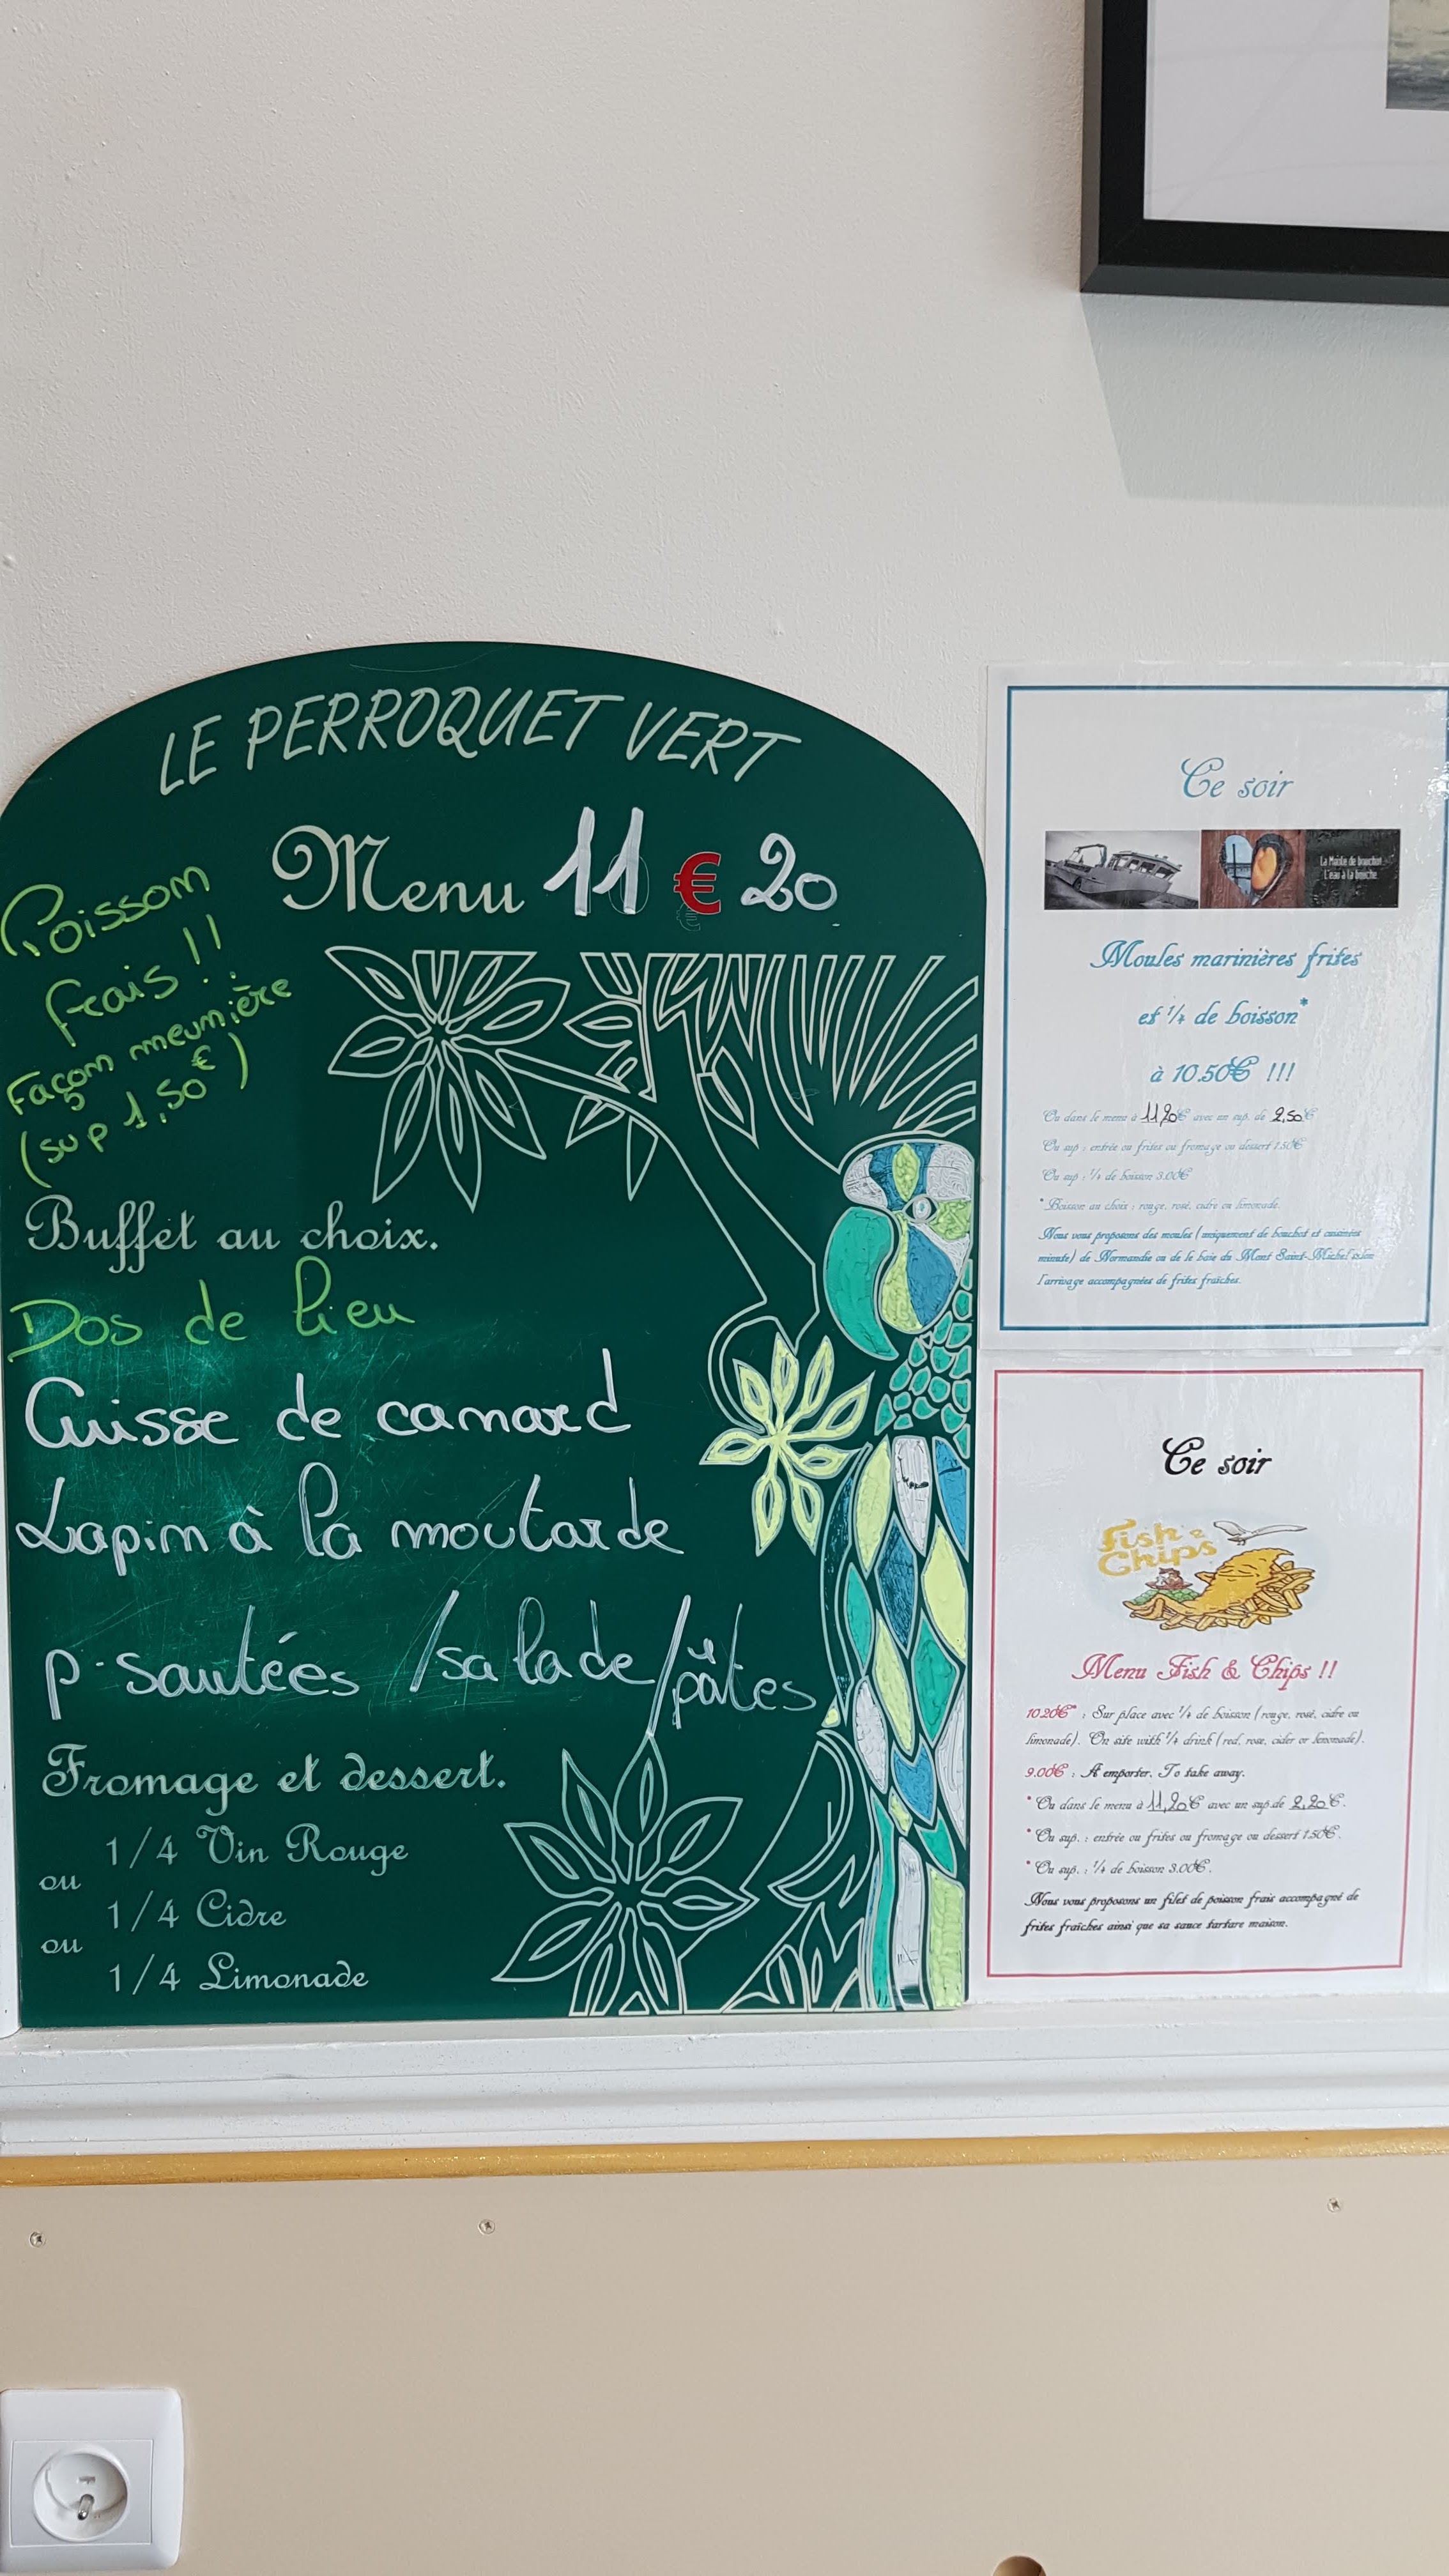 LE PERROQUET VERT
Menu 11 € 20
Poisson
frais !!
Façon meunière
(sup 1,50€)
Buffet au choix.
Dos de lieu
Cuisse de canard
Lapin à la moutarde
p. sautées / salade / pâtes
Fromage et dessert.
1/4 Vin Rouge
ou
1/4 Cidre
ou
1/4 Limonade
Ce soir
La Moule de bouchot
L'eau à la bouche
Moules marinières frites
et 1/4 de boisson*
à 10.50€ !!!
Ou dans le menu à 11,20€ avec un sup. de 2,50€
Ou sup : entrée ou frites ou fromage ou dessert 1.50€
Ou sup : 1/4 de boisson 3.00€
* Boisson au choix : rouge, rosé, cidre ou limonade.
Nous vous proposons des moules (uniquement de bouchot et cuisinées
minute) de Normandie ou de le baie du Mont Saint-Michel selon
l'arrivage accompagnées de frites fraîches.
Ce soir
Fish &
Chips
Menu Fish & Chips !!
10.20€* : Sur place avec 1/4 de boisson (rouge, rosé, cidre ou
limonade). On site with 1/4 drink (red, rose, cider or lemonade).
9.00€ : A emporter. To take away.
* Ou dans le menu à 11,20€ avec un sup.de 2,20€.
* Ou sup. : entrée ou frites ou fromage ou dessert 1.50€.
* Ou sup. : 1/4 de boisson 3.00€.
Nous vous proposons un filet de poisson frais accompagné de
frites fraîches ainsi que sa sauce tartare maison.